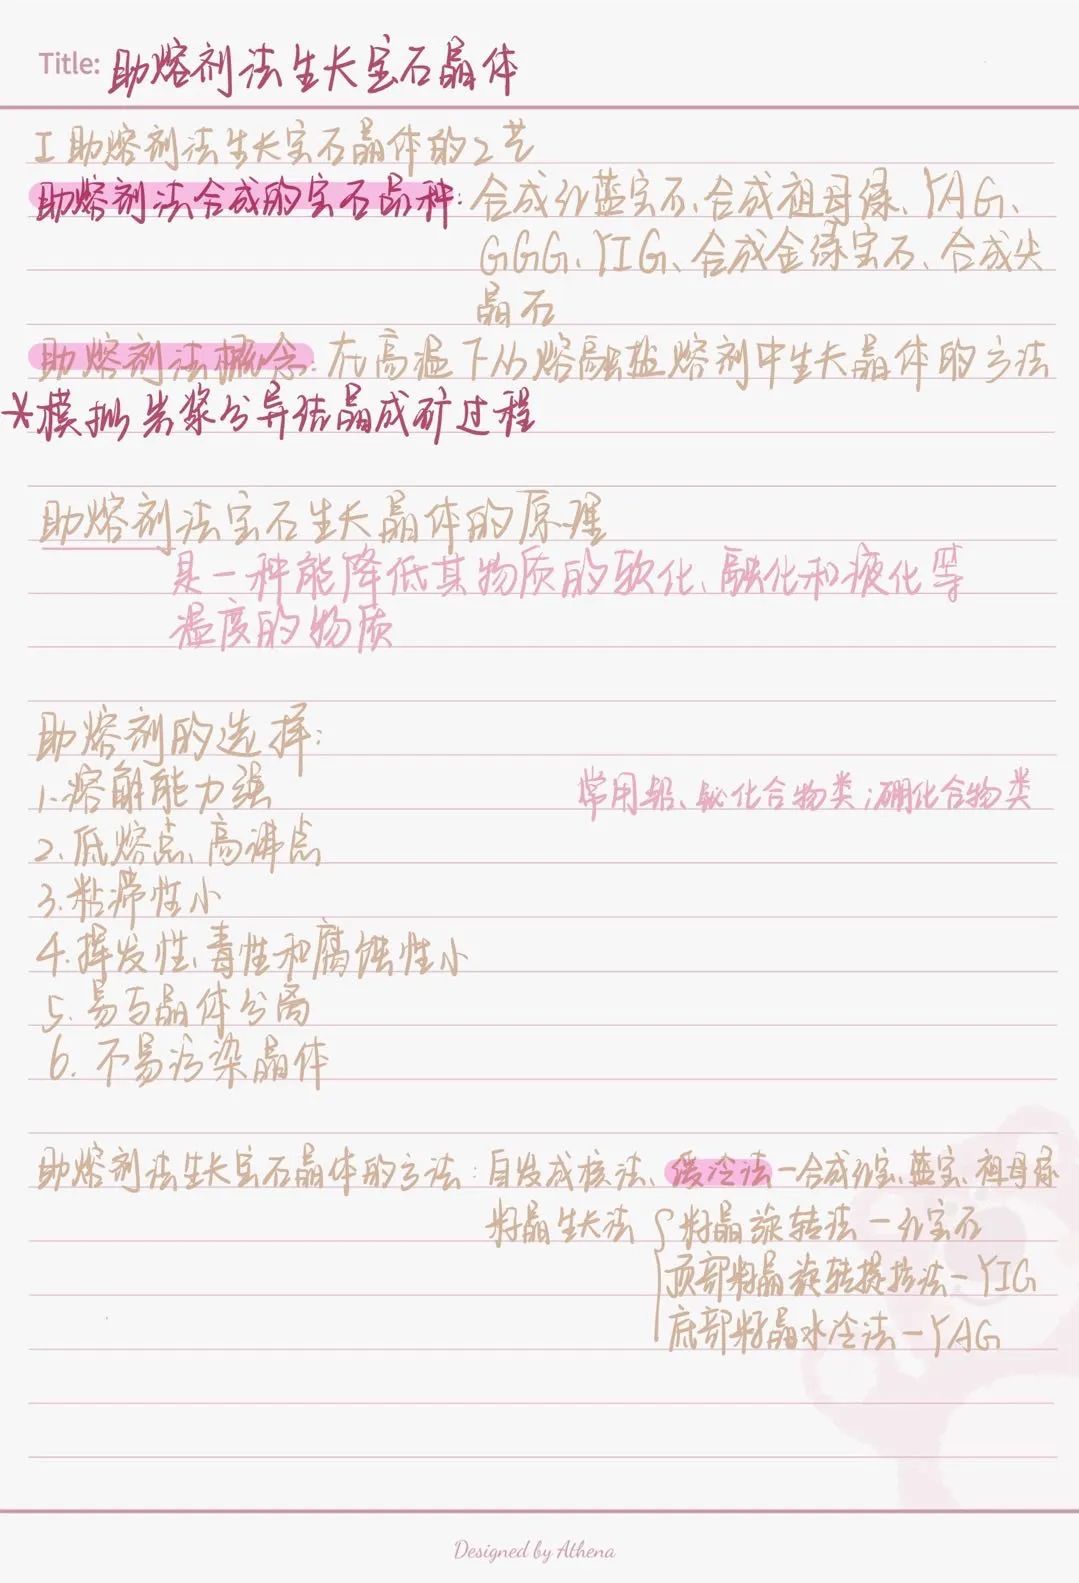 Title: 助熔剂法生长宝石晶体
I 助熔剂法生长宝石晶体的工艺
助熔剂法合成的宝石品种: 合成红蓝宝石、合成祖母绿、YAG、
GGG、YIG、合成金绿宝石、合成尖
晶石
助熔剂法概念: 在高温下从熔融盐熔剂中生长晶体的方法
*模拟岩浆分异结晶成矿过程
助熔剂法宝石生长晶体的原理
是一种能降低其物质的软化、融化和液化等
温度的物质
助熔剂的选择:
1.溶解能力强
常用铅、铋化合物类;硼化合物类
2.低熔点、高沸点
3.粘滞性小
4.挥发性、毒性和腐蚀性小
5.易与晶体分离
6.不易污染晶体
助熔剂法生长宝石晶体的方法: 自发成核法、缓冷法—合成红宝、蓝宝、祖母绿
籽晶生长法 { 籽晶旋转法—红宝石
顶部籽晶旋转提拉法—YIG
底部籽晶水冷法—YAG
Designed by Athena